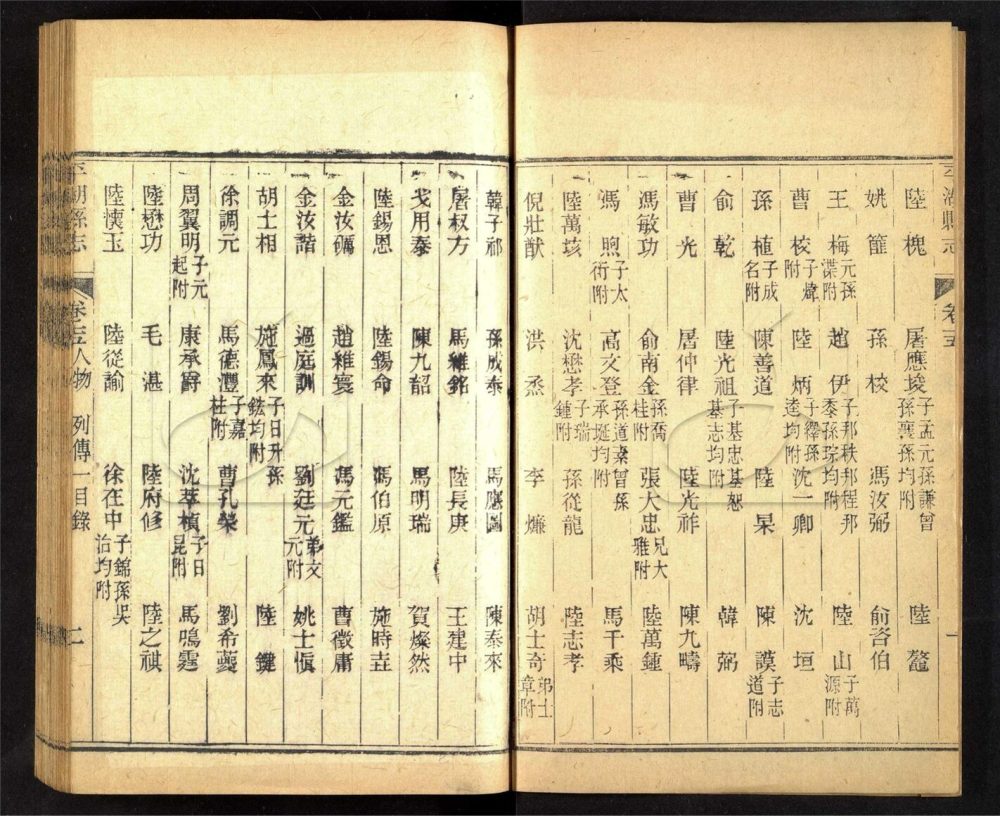 平湖縣志 卷十五 一
陸槐 屠應埈 子孟元孫謙曾孫襄孫均附 陸鰲
姚篚 孫校 馮汝弼 俞咨伯
王梅 元孫附 趙伊 子邦秩邦程邦黍孫琮均附 陸山 子萬源附
曹校 子煒附 陸炳 子繹孫逵均附 沈一卿 沈垣
孫植 子成名附 陳善道 陸杲 陳謨 子志道附
俞乾 陸光祖 子基忠基恕基志均附 韓弼
曹光 屠仲律 陸光祚 陳九疇
馮敏功 俞南金 孫喬桂附 張大忠 兄大雅附 陸萬鍾
馮煦 子太衛附 高文登 孫道素曾孫承埏均附 馬千乘
陸萬垓 沈懋孝 子瑞鍾附 孫從龍 陸志孝
倪壯猷 洪烝 李 胡士奇 弟士章附
韓子祁 孫成泰 馬應圖 陳泰來
屠叔方 馬維銘 陸長庚 王建中
戈用泰 陳九韶 馬明瑞 賀燦然
陸錫恩 陸錫命 馮伯原 施時
金汝礪 趙維寰 馮元鑑 曹徵庸
金汝諧 過庭訓 劉廷元 弟文元附 姚士愼
胡士相 施鳳來 子日升孫鋐均附 陸鍵
徐調元 馬德灃 子嘉柱附 曹孔榮 劉希夔
周翼明 子元起附 康承爵 沈萃楨 子日昆附 馬鳴霆
陸懋功 毛湛 陸府修 陸之祺
陸懷玉 陸從諭 徐在中 子錦孫吳治均附
平湖縣志 卷十五 人物 列傳一目錄 二